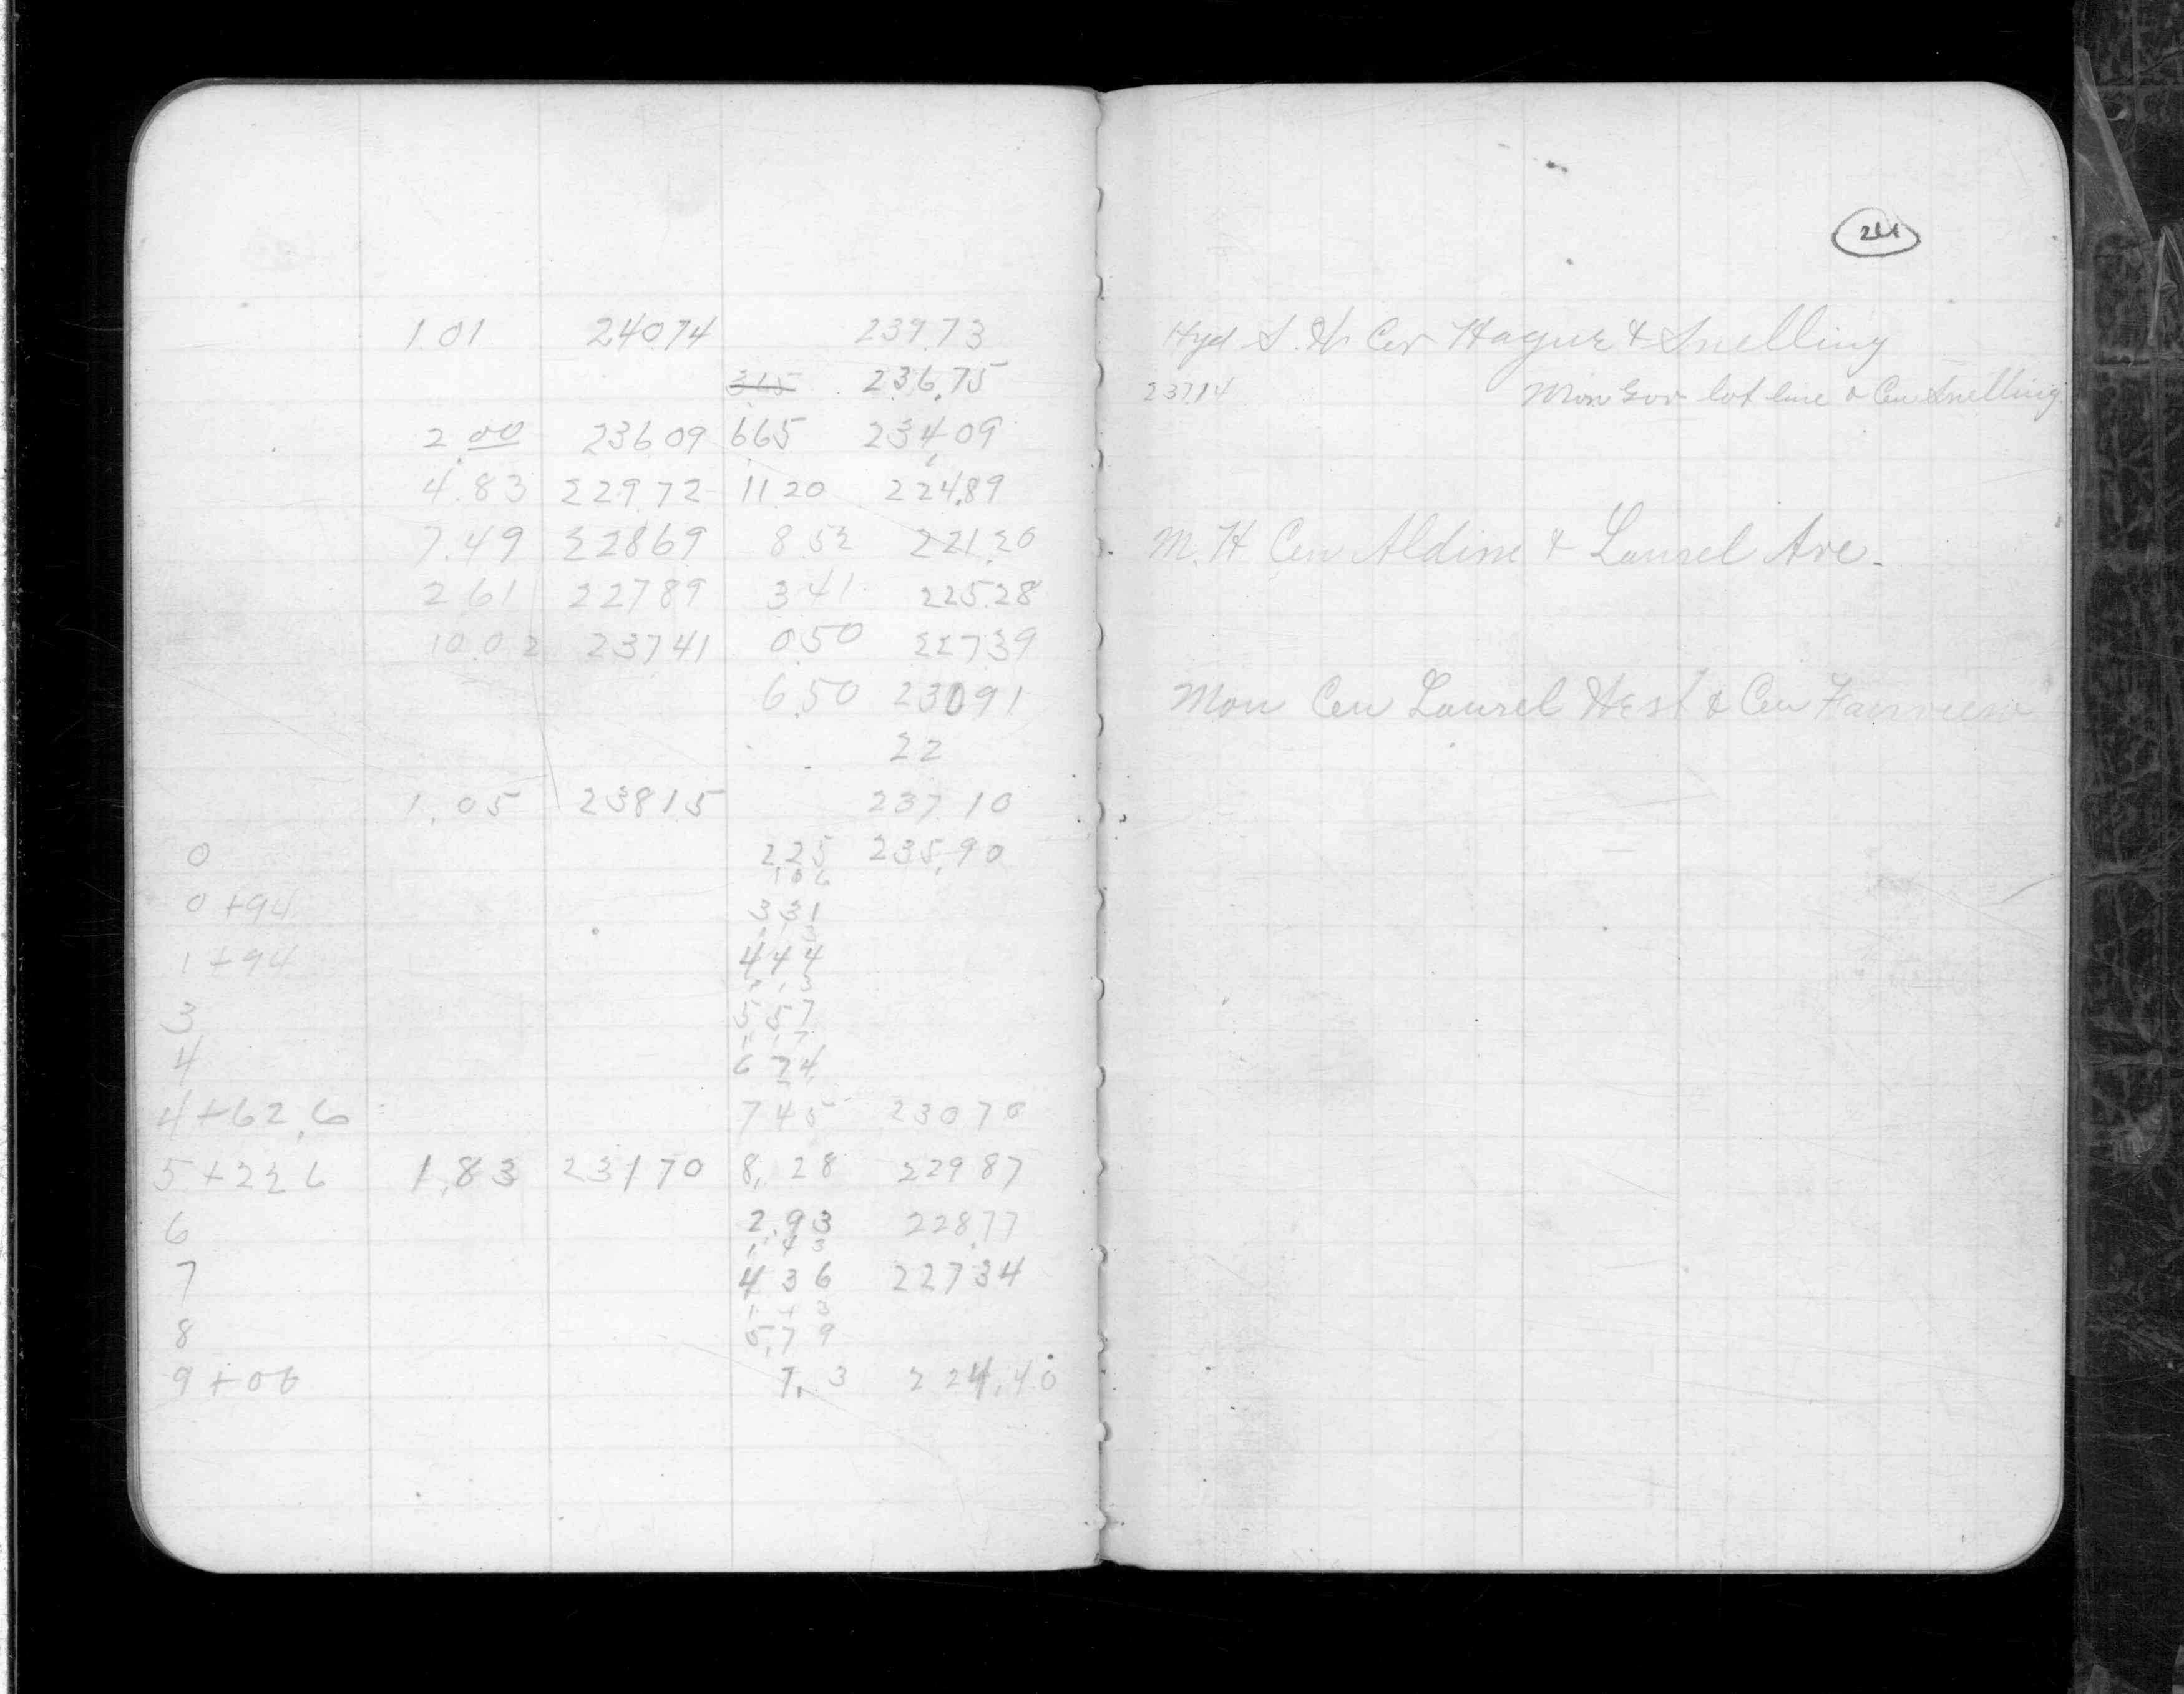 1.01 240.74 239.73
315 236.75
2.00 236 09 665 234.09
4.83 229 72 11 20 224.89
7.49 228 69 8 52 221 20
2 61 227 89 3 41 225.28
10.0 2 237 41 0 50 227 39
6.50 230 91
22
1.05 238 15 237 10
0 2 25 235.90
1 0 6
0 +94 3 31
1 +94 4 4 4
3 5 57
4 6 74
4 +62.6 7 45 230 70
5 +22 6 1.83 231 70 8.28 229 87
6 2.93 228.77
1 43
7 4 36 227 34
1 43
8 5.79
9 +06 224.40
Hyd S.W. Cor Hague & Snelling
237.14 Mon Gov lot line & Cen Snelling
M.H Cen Aldine & Laurel Ave.
Mon Cen Laurel West & Cen Fairview